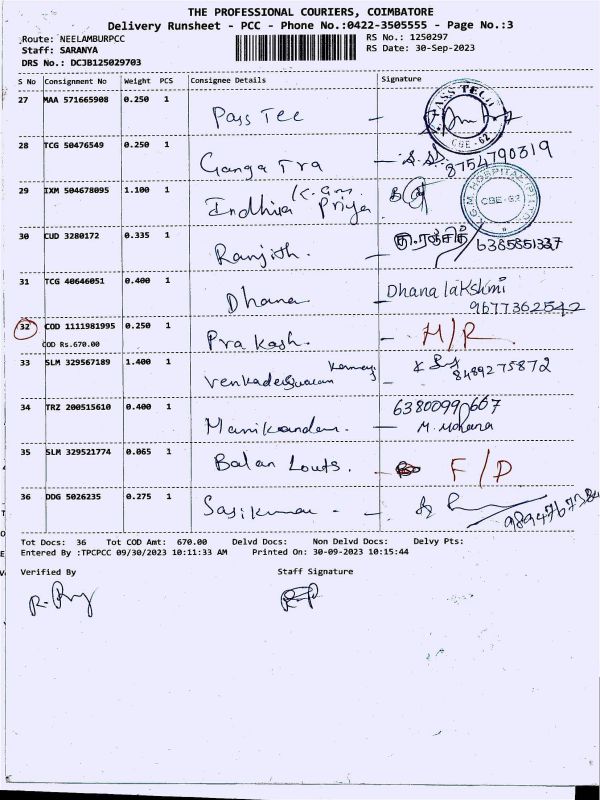 THE PROFESSIONAL COURIERS, COIMBATORE
Delivery Runsheet - PCC - Phone No.:0422-3505555 - Page No.:3
Route: NEELAMBURPCC RS No.: 1250297
Staff: SARANYA RS Date: 30-Sep-2023
DRS No.: DCJB125029703
S No Consignment No Weight PCS Consignee Details Signature
27 MAA 571665908 0.250 1 Pass Tec PASS TECH CBE - 62
28 TCG 50476549 0.250 1 Ganga Tra 8754790319
29 IXM 504678095 1.100 1 Indhira Priya K.G.M. HOSPITAL (P) LTD. CBE-62
30 CUD 3280172 0.335 1 Ranjith. 6385851337
31 TCG 40646051 0.400 1 Dhana Dhana lakshmi
9677362542
32 COD 1111981995 0.250 1 Prakash. H/R
COD Rs.670.00
33 SLM 329567189 1.400 1 8489275872
34 TRZ 200515610 0.400 1 Manikandan. 6380099667
M. Mohana
35 SLM 329521774 0.065 1 Balan Louts. F/D
36 DDG 5026235 0.275 1 Sasikumar
Tot Docs: 36 Tot COD Amt: 670.00 Delvd Docs: Non Delvd Docs: Delvy Pts:
Entered By :TPCPCC 09/30/2023 10:11:33 AM Printed On: 30-09-2023 10:15:44
Verified By Staff Signature